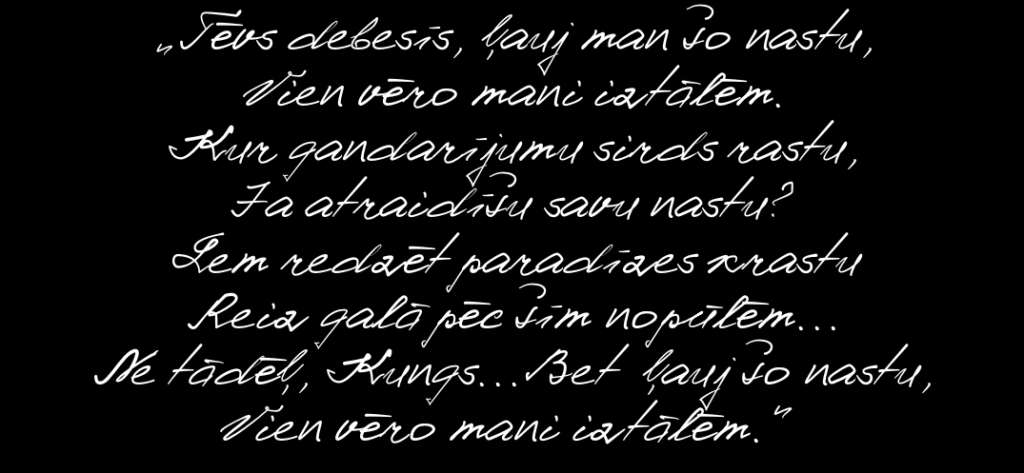 „Tēvs debesīs, ļauj man šo nastu,
Vien vēro mani iztālēm.
Kur gandarījumu sirds rastu,
Ja atraidīšu savu nastu?
Lem redzēt paradīzes krastu
Reiz galā pēc šīm nopūlēm...
Ne tādēļ, Kungs...Bet ļauj šo nastu,
Vien vēro mani iztālēm.”